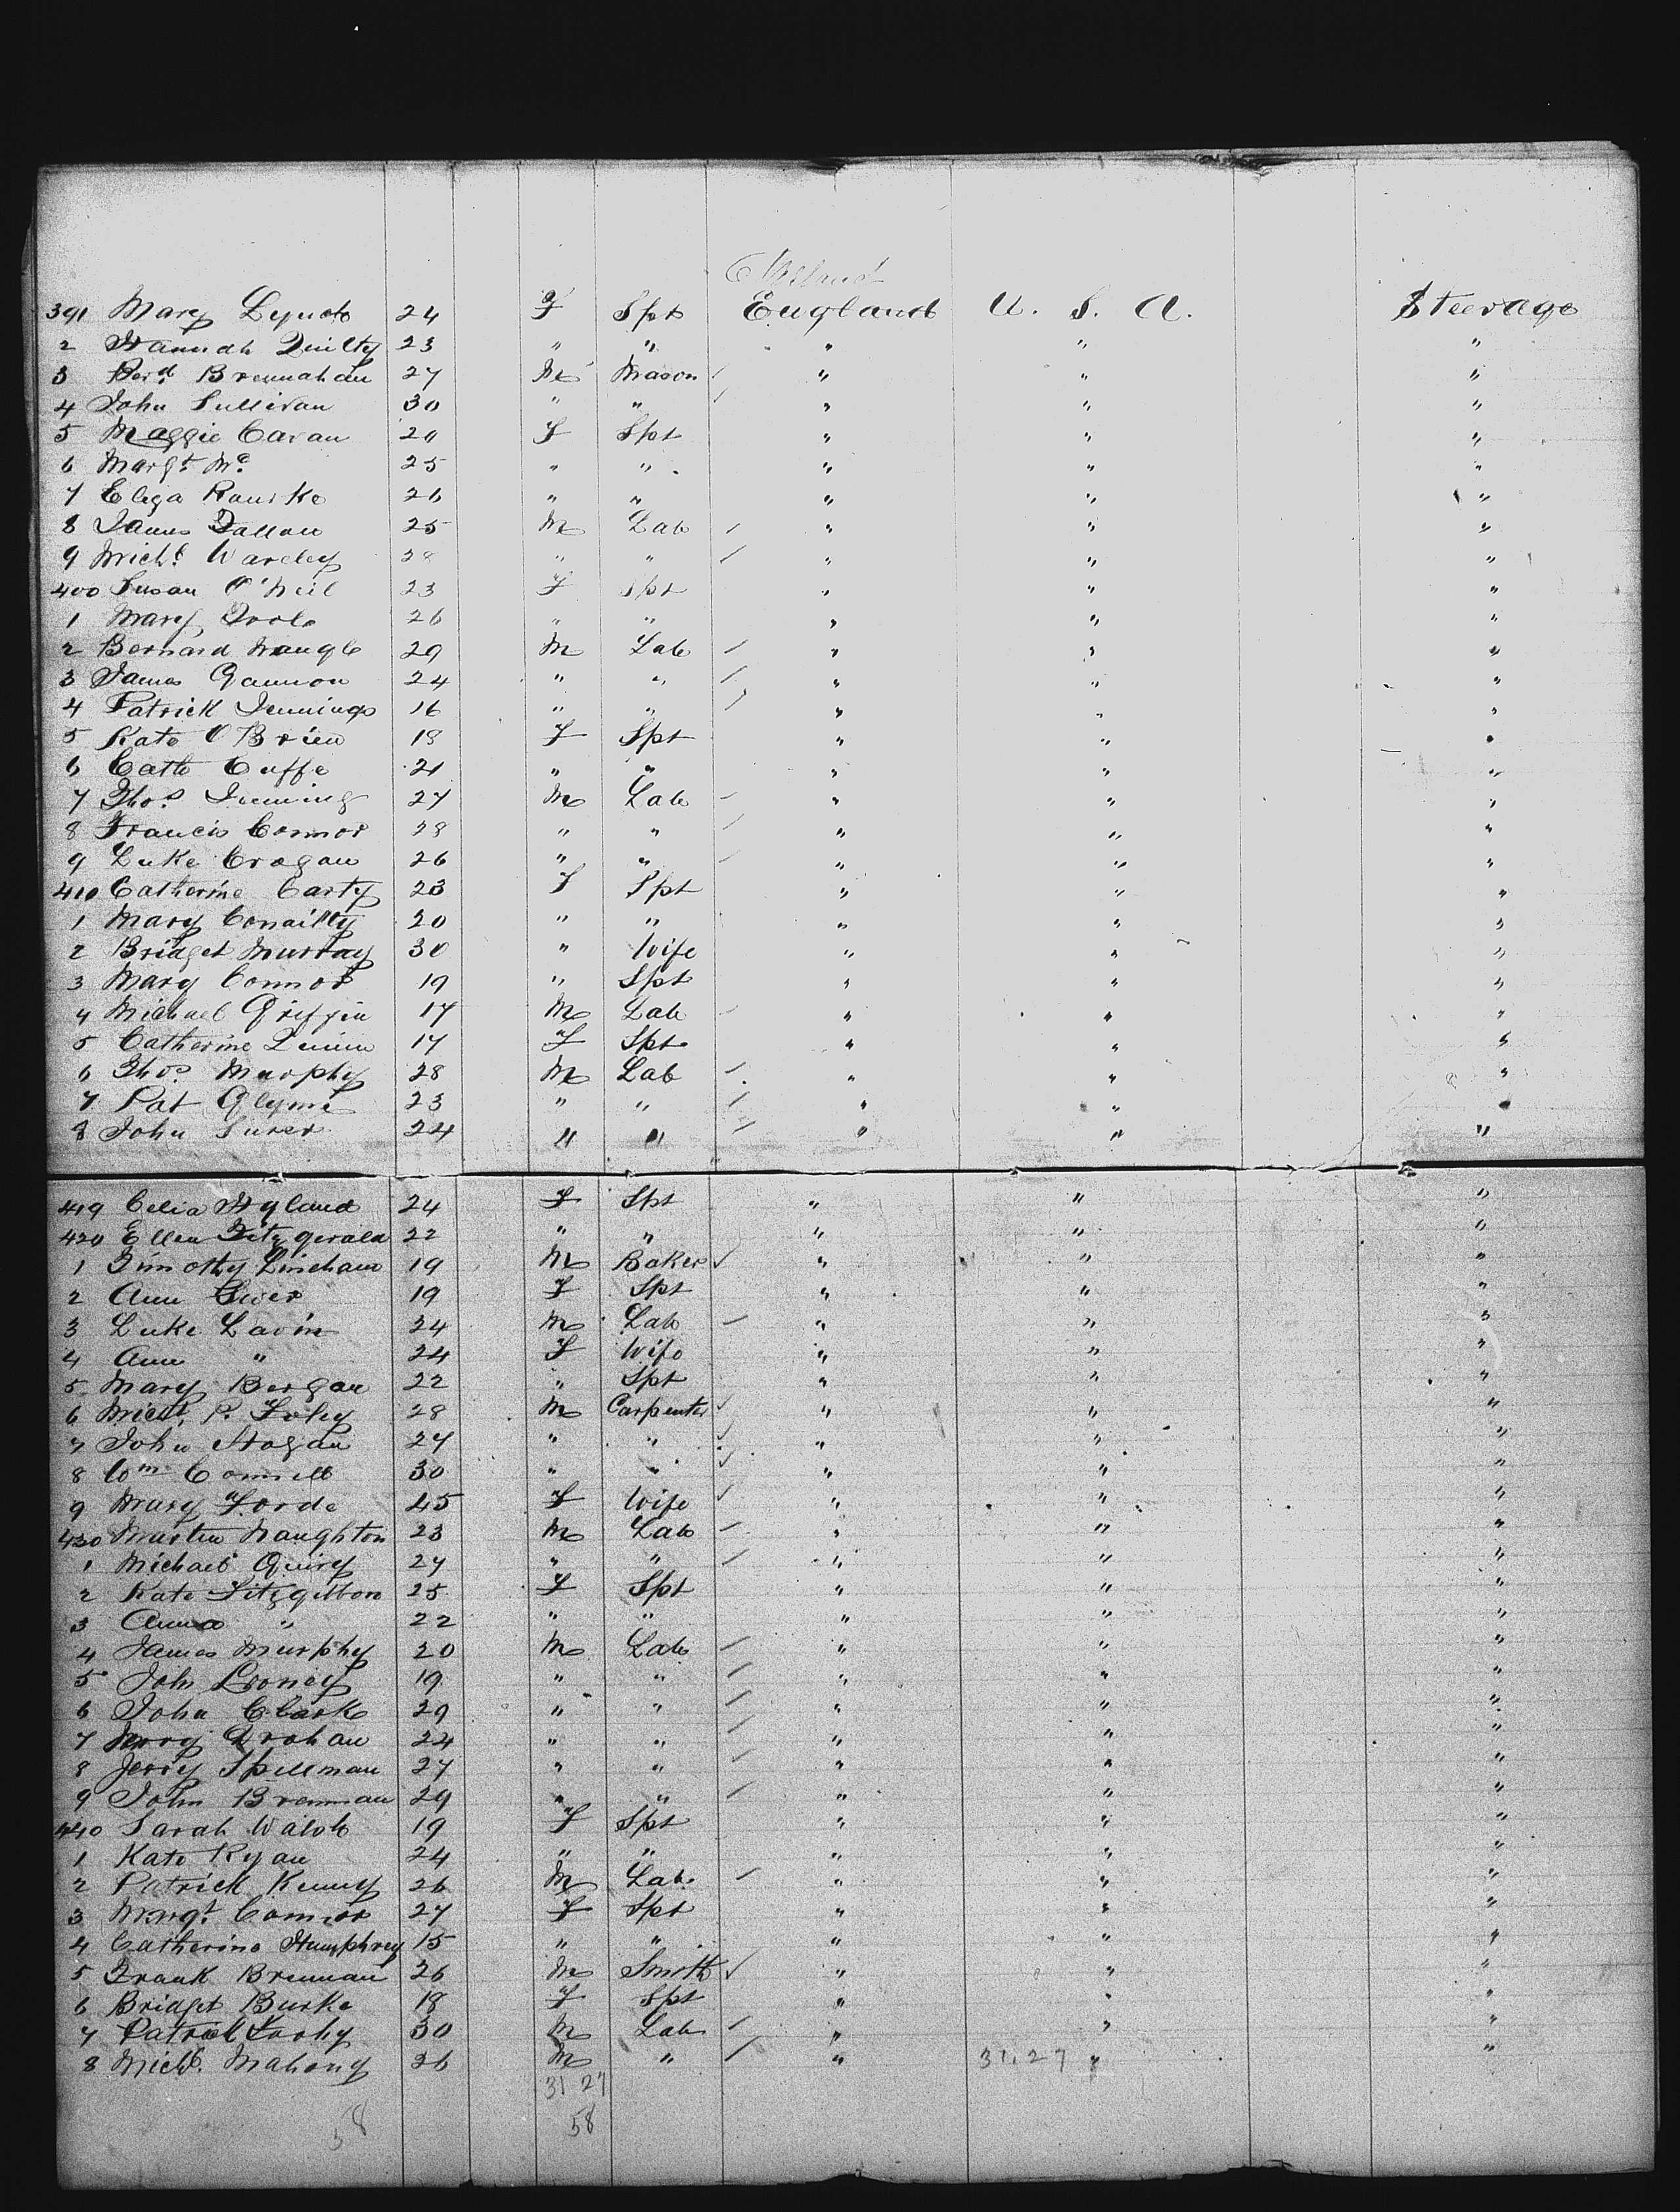 Ireland
391 Mary Lynch 24 F Spt England U. S. A. Steerage
2 Hannah Quilty 23 " " " " "
3 Berd. Brennahan 27 M Mason " " "
4 John Sullivan 30 " " " " "
5 Maggie Cavan 20 F Spt " " "
6 Margt. Mc 25 " " " " "
7 Eliza Rourke 26 " " " " "
8 James Fallon 25 M Lab " " "
9 Michl. Wareley 28 " " " " "
400 Susan O'Neil 23 F Spt " " "
1 Mary Toole 26 " " " " "
2 Bernard Nangle 29 M Lab " " "
3 James Gannon 24 " " " " "
4 Patrick Jennings 16 " " " " "
5 Kate O'Brien 18 F Spt " " "
6 Cath Cuffe 21 " " " " "
7 Thos. 27 M Lab " " "
8 Francis Connor 28 " " " " "
9 Luke Crogan 26 " " " " "
410 Catherine Carty 23 F Spt " " "
1 Mary Conailly 20 " " " " "
2 Bridget Murray 30 " Wife " " "
3 Mary Connor 19 " Spt " " "
4 Michael Griffin 17 M Lab " " "
5 Catherine Quinn 17 F Spt " " "
6 Thos. Murphy 28 M Lab " " "
7 Pat Glynn 23 " " " " "
8 John 24 " " " " "
419 Celia Hyland 24 F Spt " " "
420 Ellen Fitzgerald 22 " " " " "
1 Timothy Linehan 19 M Baker " " "
2 Ann 19 F Spt " " "
3 Luke Lavin 24 M Lab " " "
4 Ann " 24 F Wife " " "
5 Mary Bergan 22 " Spt " " "
6 Michl. P. Foley 28 M Carpenter " " "
7 John Hogan 27 " " " " "
8 Wm Connell 30 " " " " "
9 Mary Forde 45 F Wife " " "
430 Martin Naughton 23 M Lab " " "
1 Michael Quiry 27 " " " " "
2 Kate Fitzgibbon 25 F Spt " " "
3 Anna " 22 " " " " "
4 James Murphy 20 M Lab " " "
5 John Looney 19 " " " " "
6 John Clark 29 " " " " "
7 Drohan 22 " " " " "
8 Jerry Spillman 27 " " " " "
9 John Brennan 29 " " " " "
440 Sarah Walsh 19 F Spt " " "
1 Kate Ryan 24 " " " " "
2 Patrick Kenny 26 M Lab " " "
3 Margt. Connor 27 F Spt " " "
4 Catherine Humphrey 15 " " " " "
5 Frank Brennan 26 M Smith " " "
6 Bridget Burke 18 F Spt " " "
7 Patrick 30 M Lab " " "
8 Michl. Mahony 26 M " " 31.27 " "
31 27
58 58